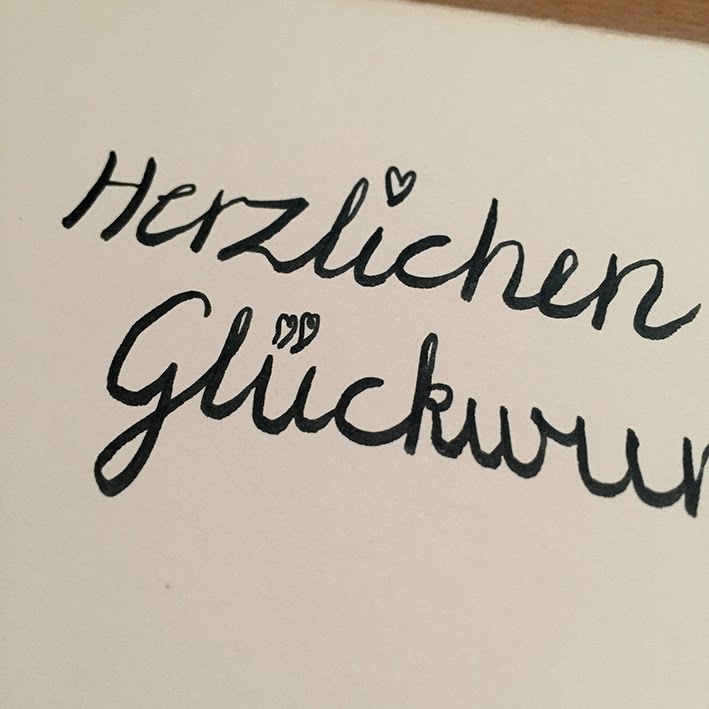 Herzlichen
Glückwun